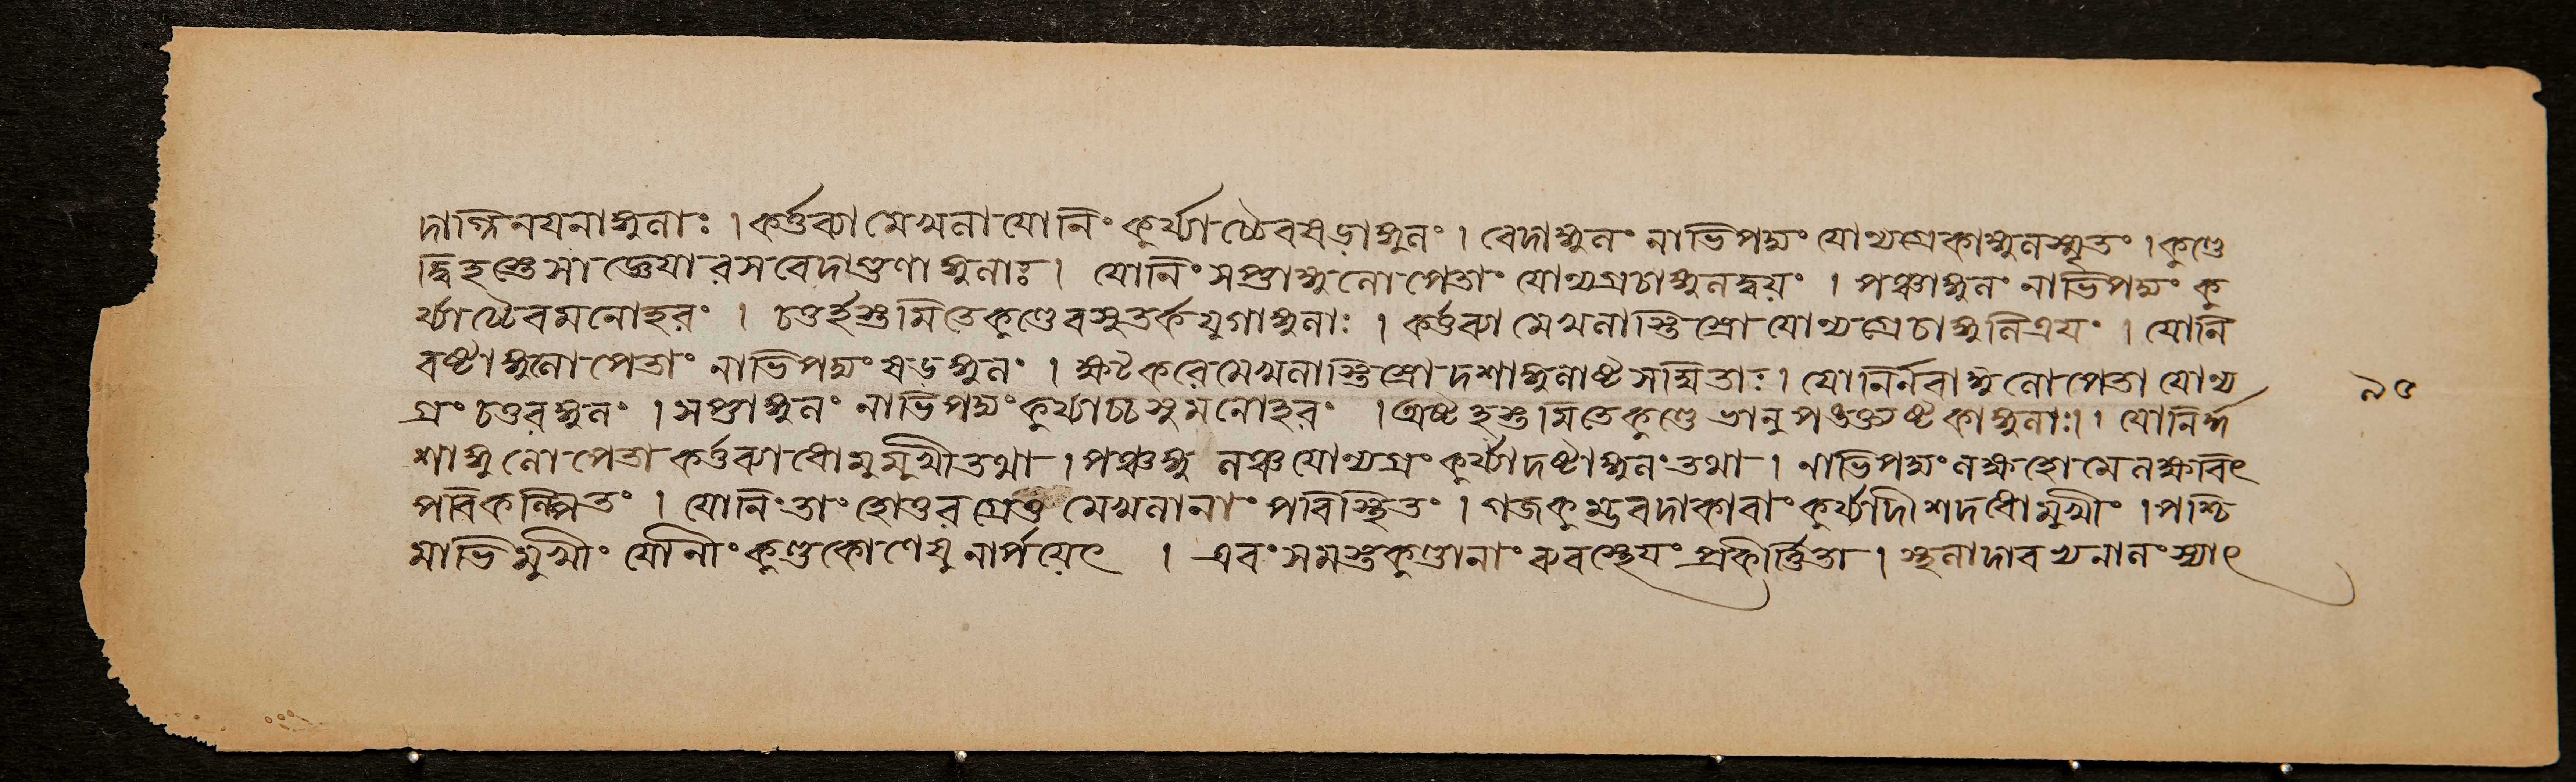 দাগ্নিনযনাঙ্গুলাঃ । কর্ত্তব্যা মেখলা যোনিং কুর্য্যাচ্চৈব ষড়াঙ্গুলং । বেদাঙ্গুলং নাভিপদ্মং যোন্যগ্রেকাঙ্গুলস্মৃতং । কুণ্ডে
দ্বিহস্তে সা জ্ঞেযা রসবেদাগুণাঙ্গুলাঃ । যোনিং সপ্তাঙ্গুলোপেতাং যোন্যগ্রঞ্চাঙ্গুলদ্বয়ং । পঞ্চাঙ্গুলং নাভিপদ্মং কু
র্য্যাচ্চৈব মনোহরং । চতুর্হস্তমিতে কুণ্ডে বসুতর্কযুগাঙ্গুলাঃ । কর্ত্তব্যা মেখলাস্তিস্রো যোন্যগ্রেচাঙ্গুলিত্রযং । যোনি
বষ্টাঙ্গুলোপেতাং নাভিপদ্মং ষডঙ্গুলং । ঋট্করে মেখলাস্তিস্রো দশাঙ্গুলাষ্টসম্মিতাঃ । যোনির্নবাঙ্গুলোপেতা যোন্য
গ্রং চতুরঙ্গুলং । সপ্তাঙ্গুলং নাভিপদ্মং কুর্য্যাচ্চ সুমনোহরং । অষ্টহস্তমিতে কুণ্ডে ভানুপঙক্ত্যষ্টকাঙ্গুলাঃ।। যোনির্দ্দ
শাঙ্গুলোপেতা কর্ত্তব্যাধোমুমুখীতথা । পঞ্চাঙ্গুলঞ্চ যোন্যগ্রং কুর্য্যাদষ্টাঙ্গুলং তথা । নাভিপদ্মং লক্ষহোমে লক্ষবিৎ
পরিকল্পিতং । যোনিং তাং হোতুরগ্রেতু মেখলানাং পরিস্থিতং । গজকুম্ভবদাকারাং কুর্য্যাদীশদধোমুখীং । পশ্চি
মাভিমুখীং যোনীং কুণ্ডকোণেষু নার্পয়েৎ । এবং সমস্তকুণ্ডানাং ব্যবস্থেযং প্রকীর্ত্তিতা । স্থলাদারখনানং স্যাৎ
৯৫